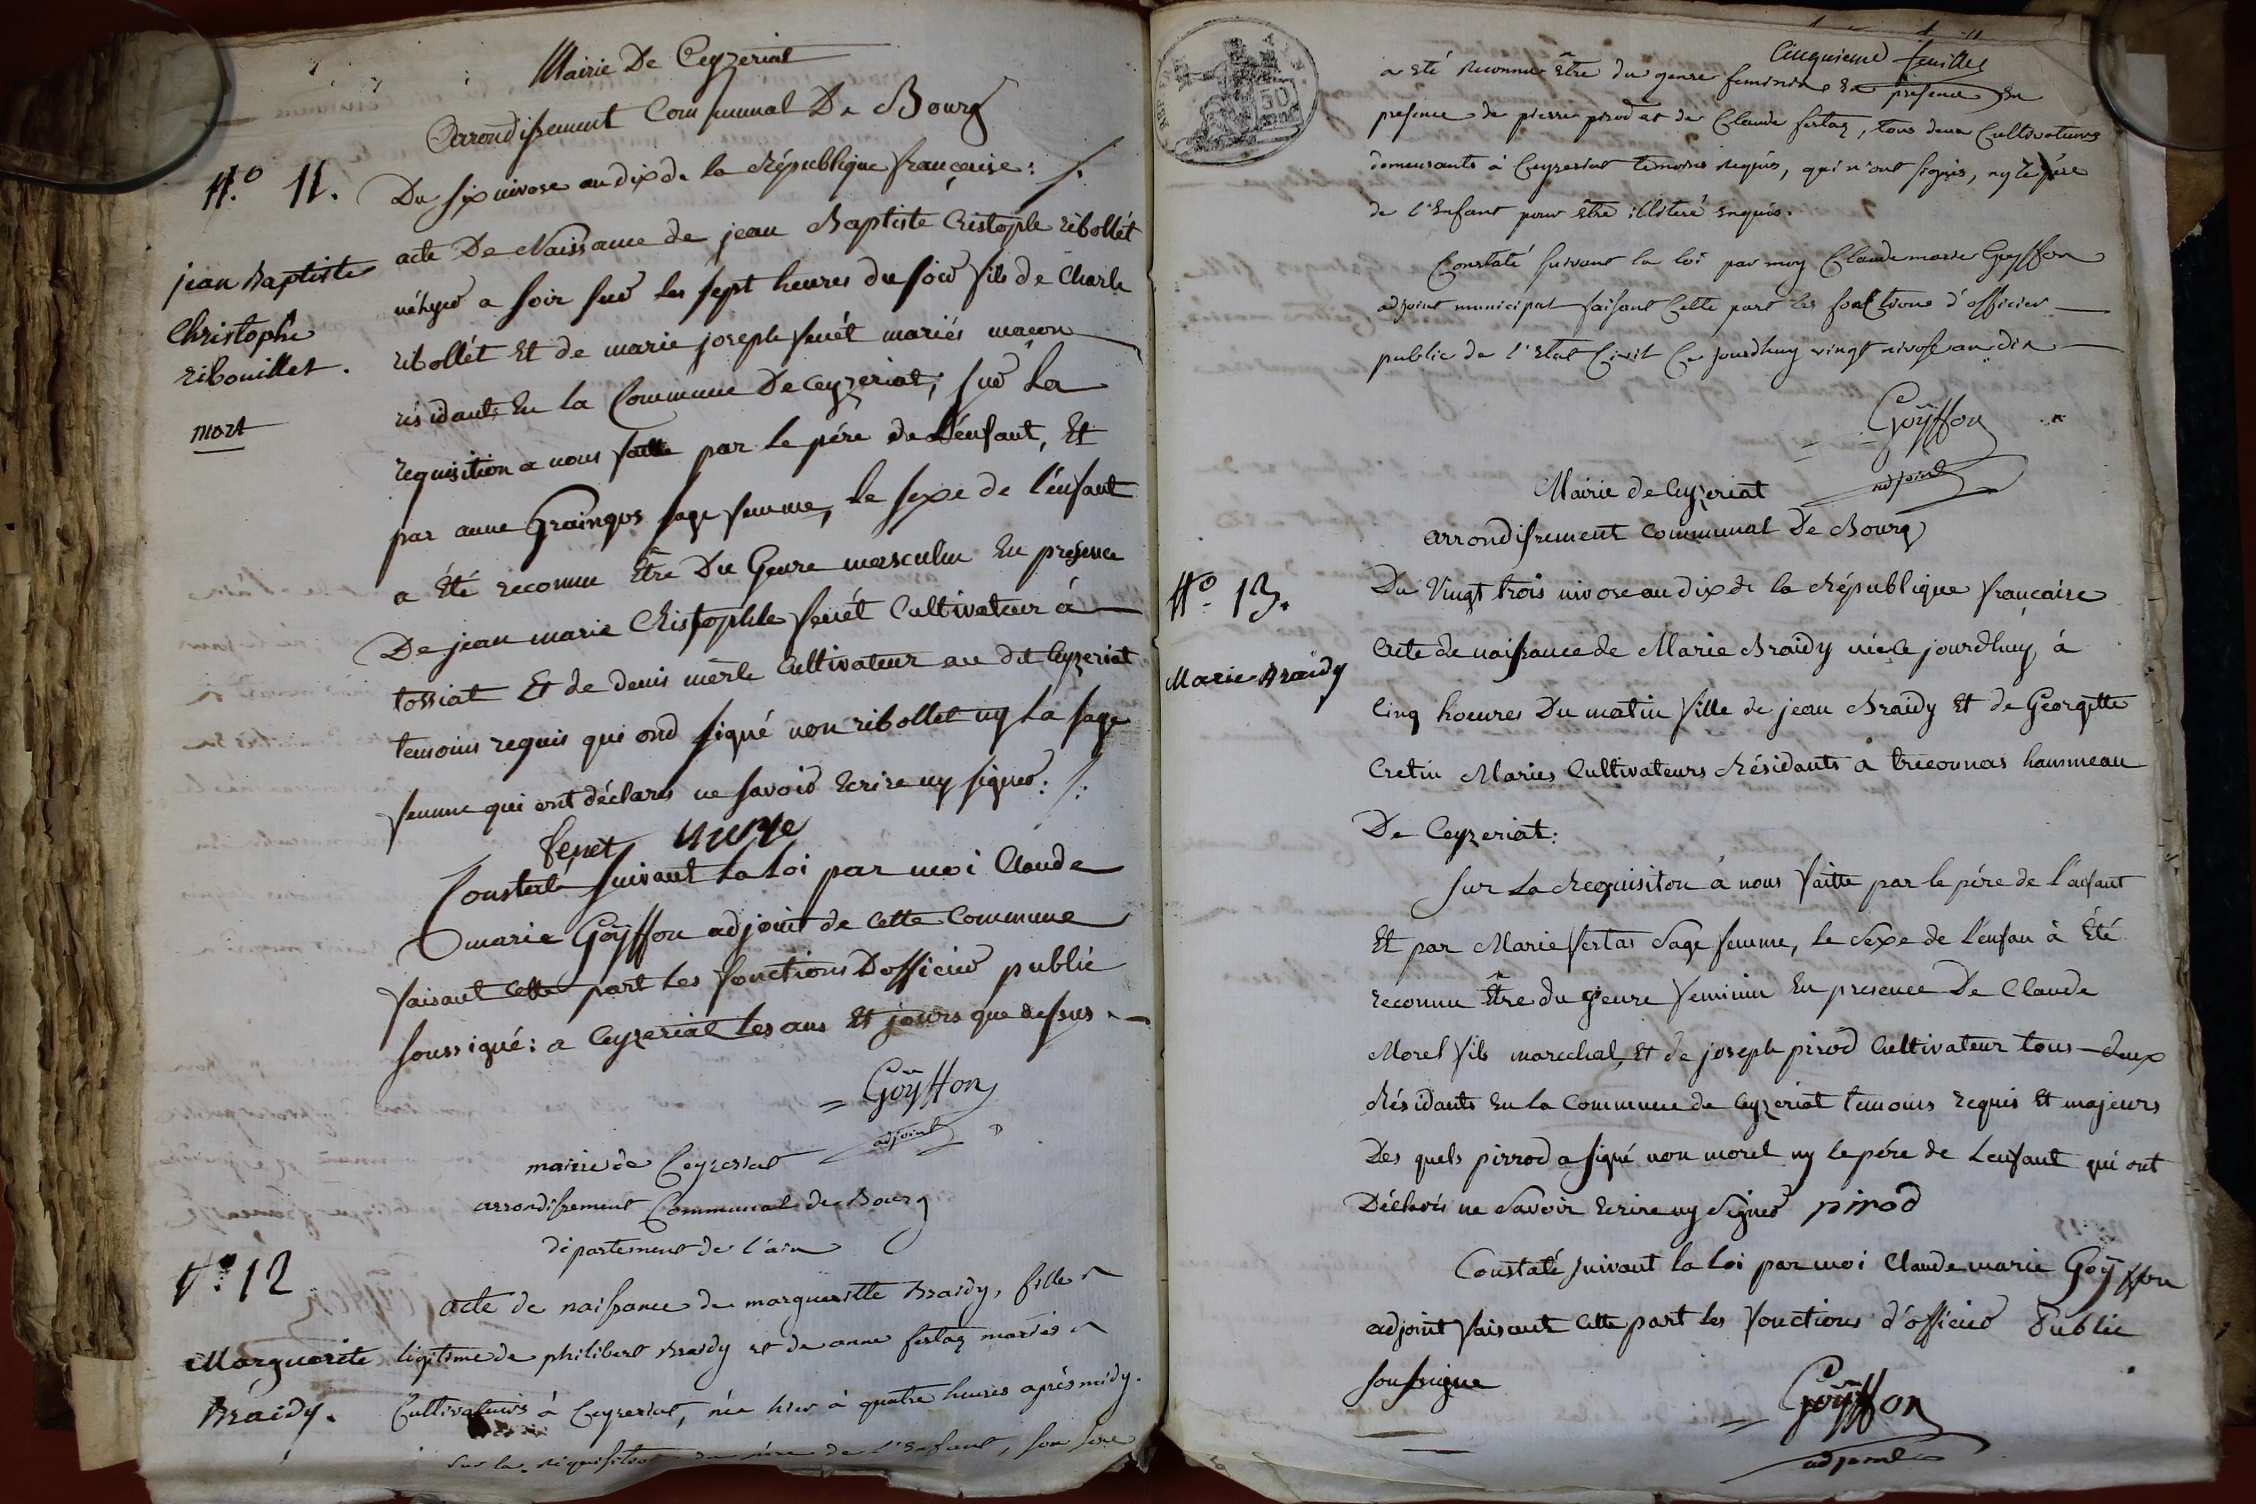 Mairie De Ceyzeriat
arrondissement Communal De Bourg
N.o 11.
Du six nivose an dix de la République françoise :
acte De Naissance de jean Baptiste Cristophe ribollét
né hyer a soir sur les sept heures du soir fils de Charle
ribollét Et de marie joseph fenét mariés maçon
résidants En la Commune De Ceyzeriat, sur La
requisition a nous faitte par le pére de L'enfant, Et
par anne Grainqos sage femme, le sexe de l'enfant
a été reconnu Etre Du Genre masculin En presence
De jean marie Christophle fenét Cultivateur à
tossiat Et de denis merle Cultivateur au dit Ceyzeriat
temoins requis qui ond signé non ribollet ny La sage
femme qui ont déclarés ne savoir Ecrire ny signer :
fenet merle
Constaté suivant La Loi par moi Claude
marie Goÿffon adjoint de cette Commune
faisant cette part Les fonctions D'officier public
soussigné : a Ceyzeriat Les ans Et jours que dessus
Goÿffon
adjoint
jean Baptiste
Christophe
ribouillet.
mort
mairie de Ceyzeriat
arrondissement Communal de Bourg
département de l'ain
N.o 12
Marguerite
Braidy.
acte de naissance de marguerite Braidy, fille
légitime de philibert Braidy et de anne fertaz mariés
Cultivateurs à Ceyzeriat, née hier à quatre heures après midy.
sur la réquisition du père de l'Enfant, son sexe
Cinquieme feuillet
a été reconnu être du genre feminin En presence En
presence de pierre pirod et de Claude fertaz, tous deux Cultivateurs
demeurants à Ceyzeriat temoins requis, qui n'ont signés, ny le père
de l'Enfant pour être illiteré enquis.
Constaté suivant la loi par moy Claude marie Goyffon
adjoint municipal faisant Cette part les fonctions d'officier
public de l'Etat Civil Ce jourdhuy vingt nivose an dix
Goÿffon
adjoint
Mairie de Ceyzeriat
arrondissement Communal De Bourg
N.o 13.
Marie Braidy
Du Vingt trois nivose an dix de la République française
acte de naissance de Marie Braidy née Ce jourdhuy à
Cinq hoeures Du matin fille de jean Braidy Et de Georgette
Cretin Mariés Cultivateurs Résidants à treconnas hammeau
De Ceyzeriat :
sur La Requisiton à nous faitte par le pére de l'anfant
Et par Marie fertas Sage femme, le Sexe de L'enfan à Eté
reconnu Être du genre feminin En presence De Claude
Morel fils marechal, Et de joseph pirod Cultivateur tous deux
Résidants En La Commune de Ceyzeriat temoins requis Et majeurs
Des quels pirrod a signé non morel ny Le pére de L'enfant qui ont
Déclarés ne Savoir Ecrire ny Signer pirod
Constaté suivant la Loi par moi Claude marie Goÿffon
adjoint faisant Cette part les fonctions d'officier Public
soussigne
Goÿffon
adjoint